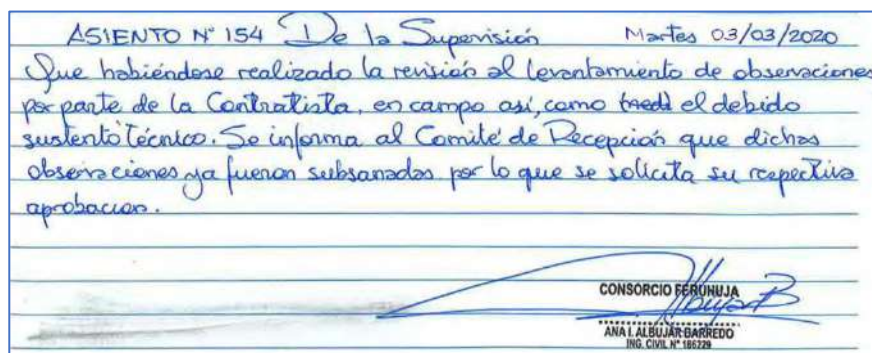 ASIENTO N° 154 De la Supervisión Martes 03/03/2020
Que habiéndose realizado la revisión al levantamiento de observaciones
por parte de la Contratista, en campo así, como el debido
sustento técnico. Se informa al Comité de Recepción que dichas
observaciones ya fueron subsanadas por lo que se solicita su respectiva
aprobacion.
CONSORCIO FERUNUJA
ANA I. ALBUJAR BARREDO
ING. CIVIL N° 186229